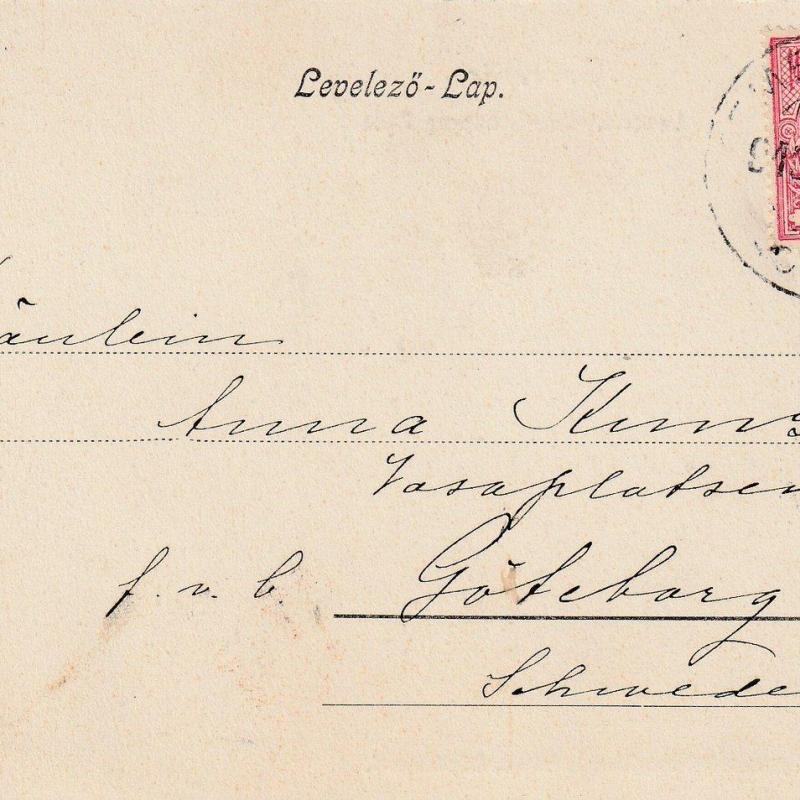 Levelező-Lap.
äulein
Anna Kung
Vasaplatsen
f. v. b. Göteborg
Schwede